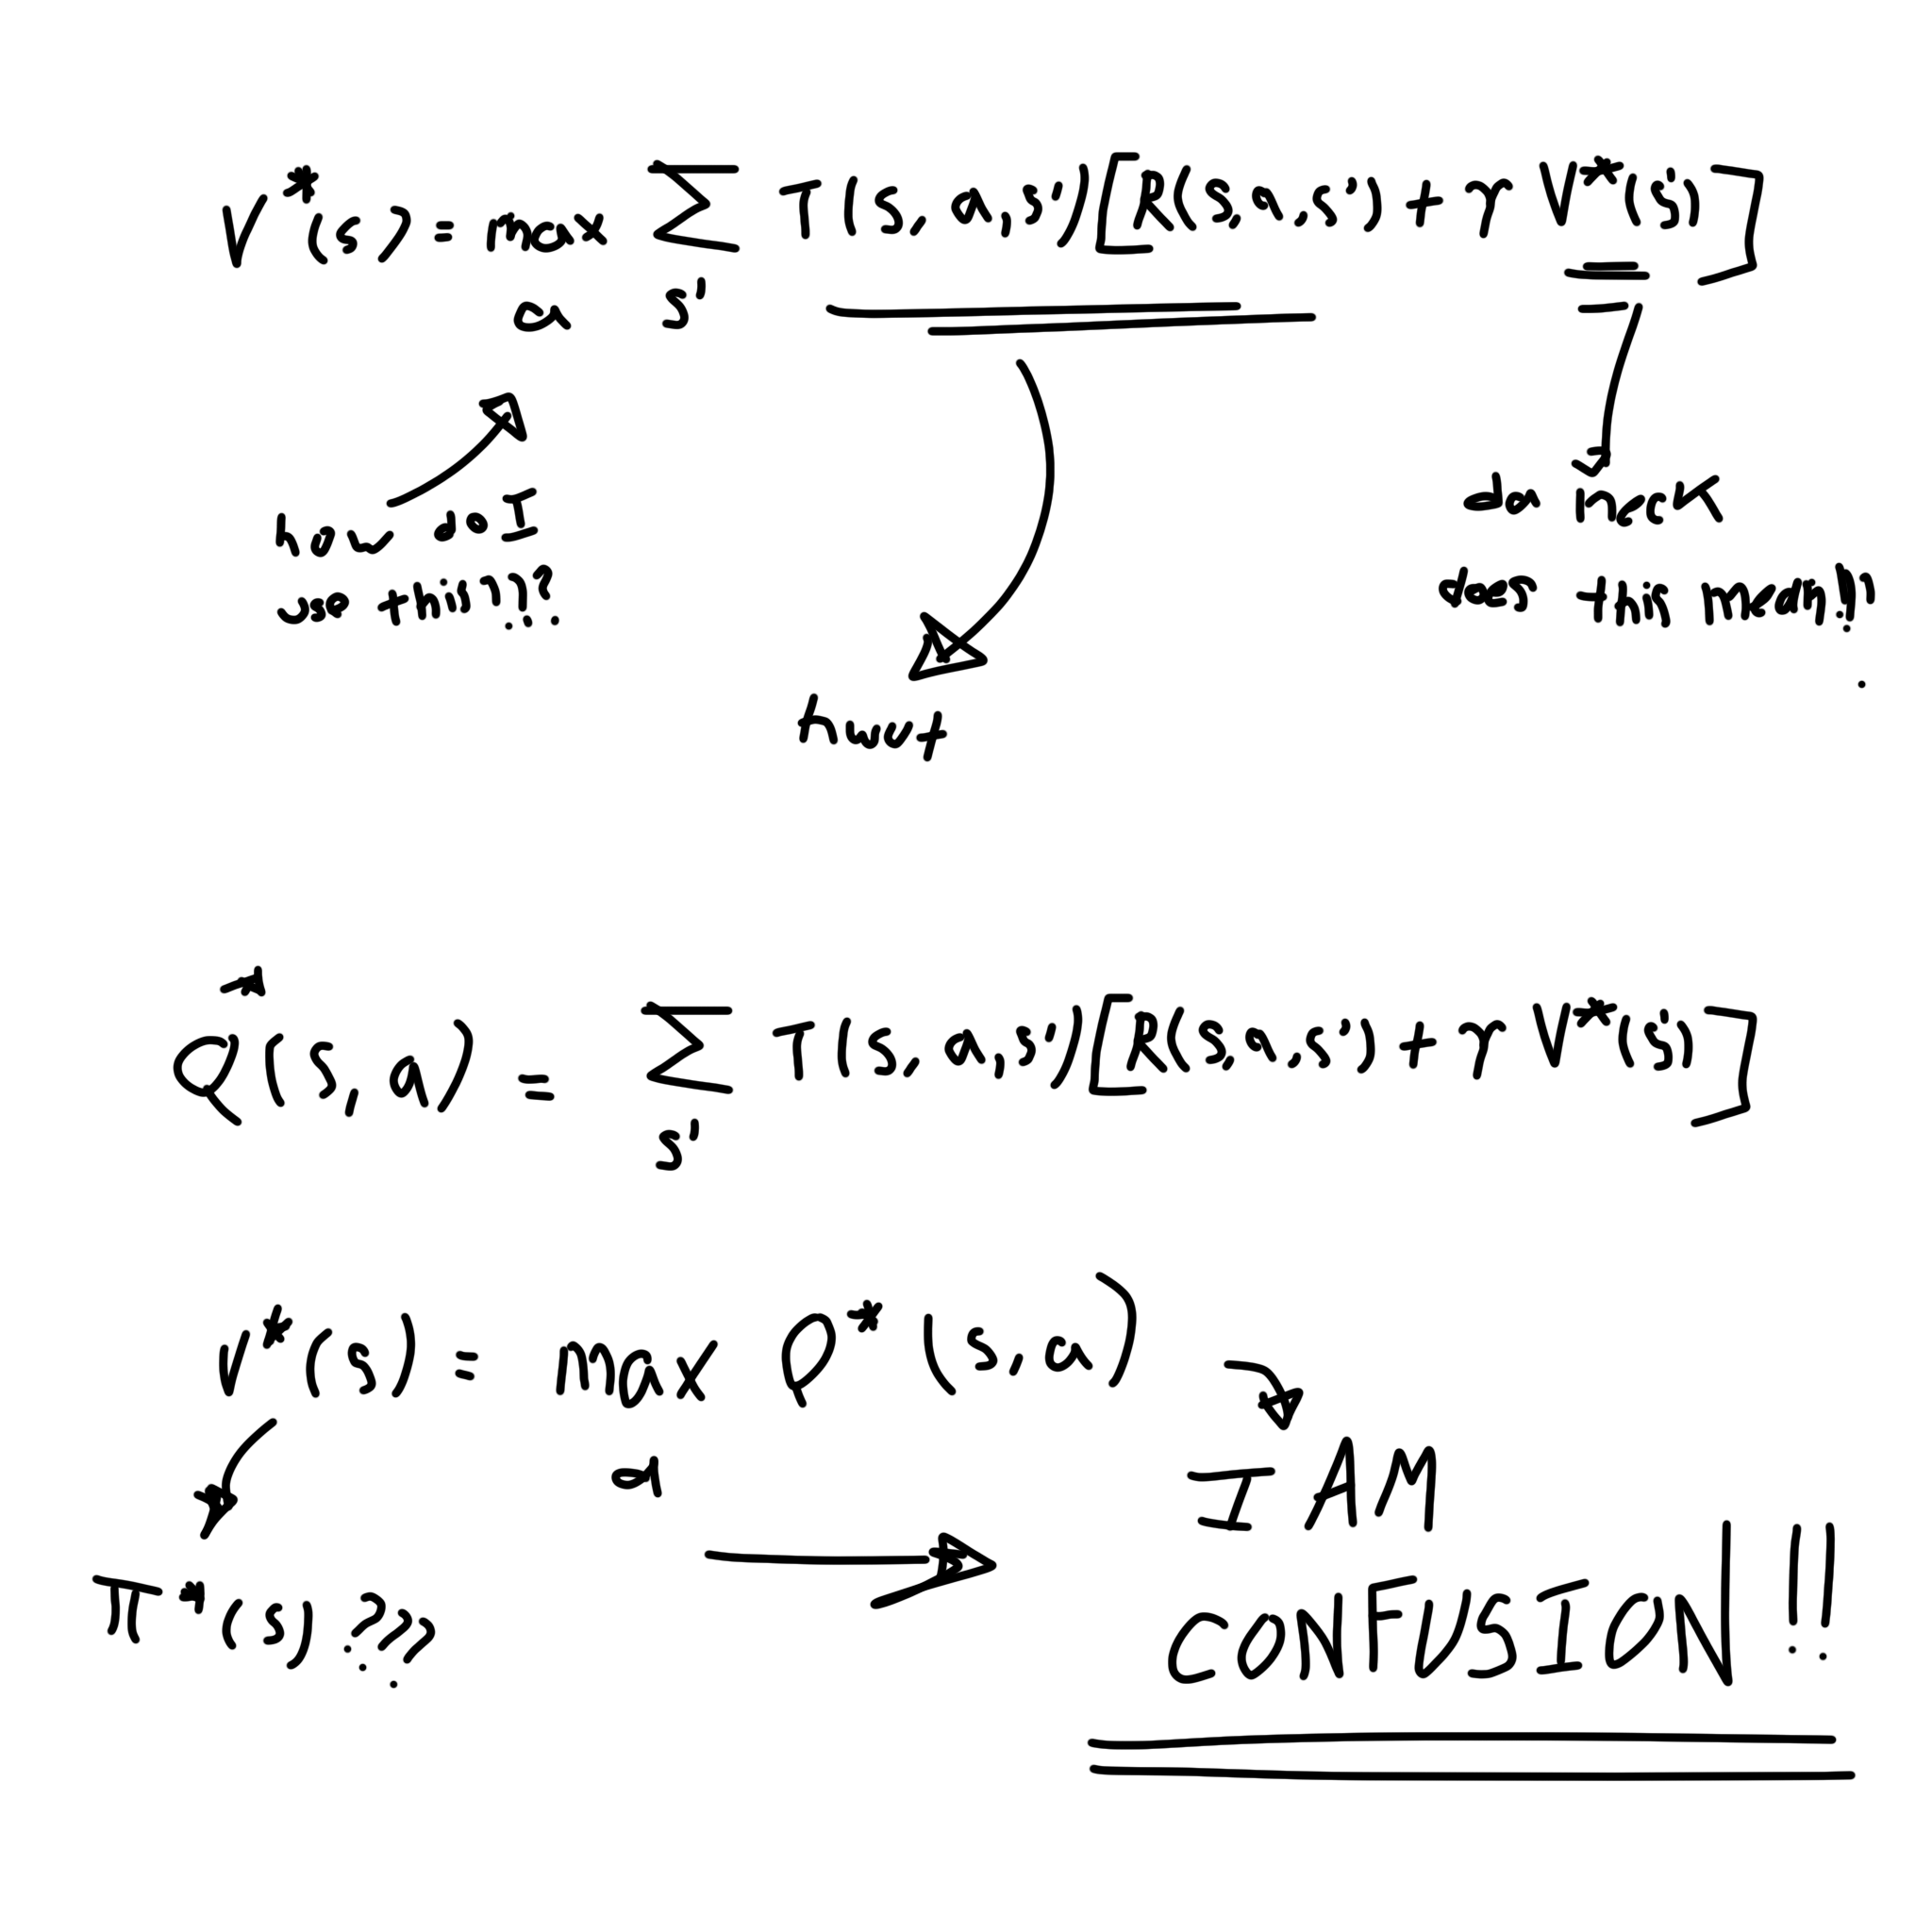 V*(s) = max Σ T(s,a,s')[R(s,a,s') + r V*(s')]
a s'
how do I
use this???
hwut
da heck
does this mean!!!
Q*(s,a) = Σ T(s,a,s')[R(s,a,s') + r V*(s')]
s'
V*(s) = max Q*(s,a)
a
π*(s)???
I AM
CONFUSION!!!